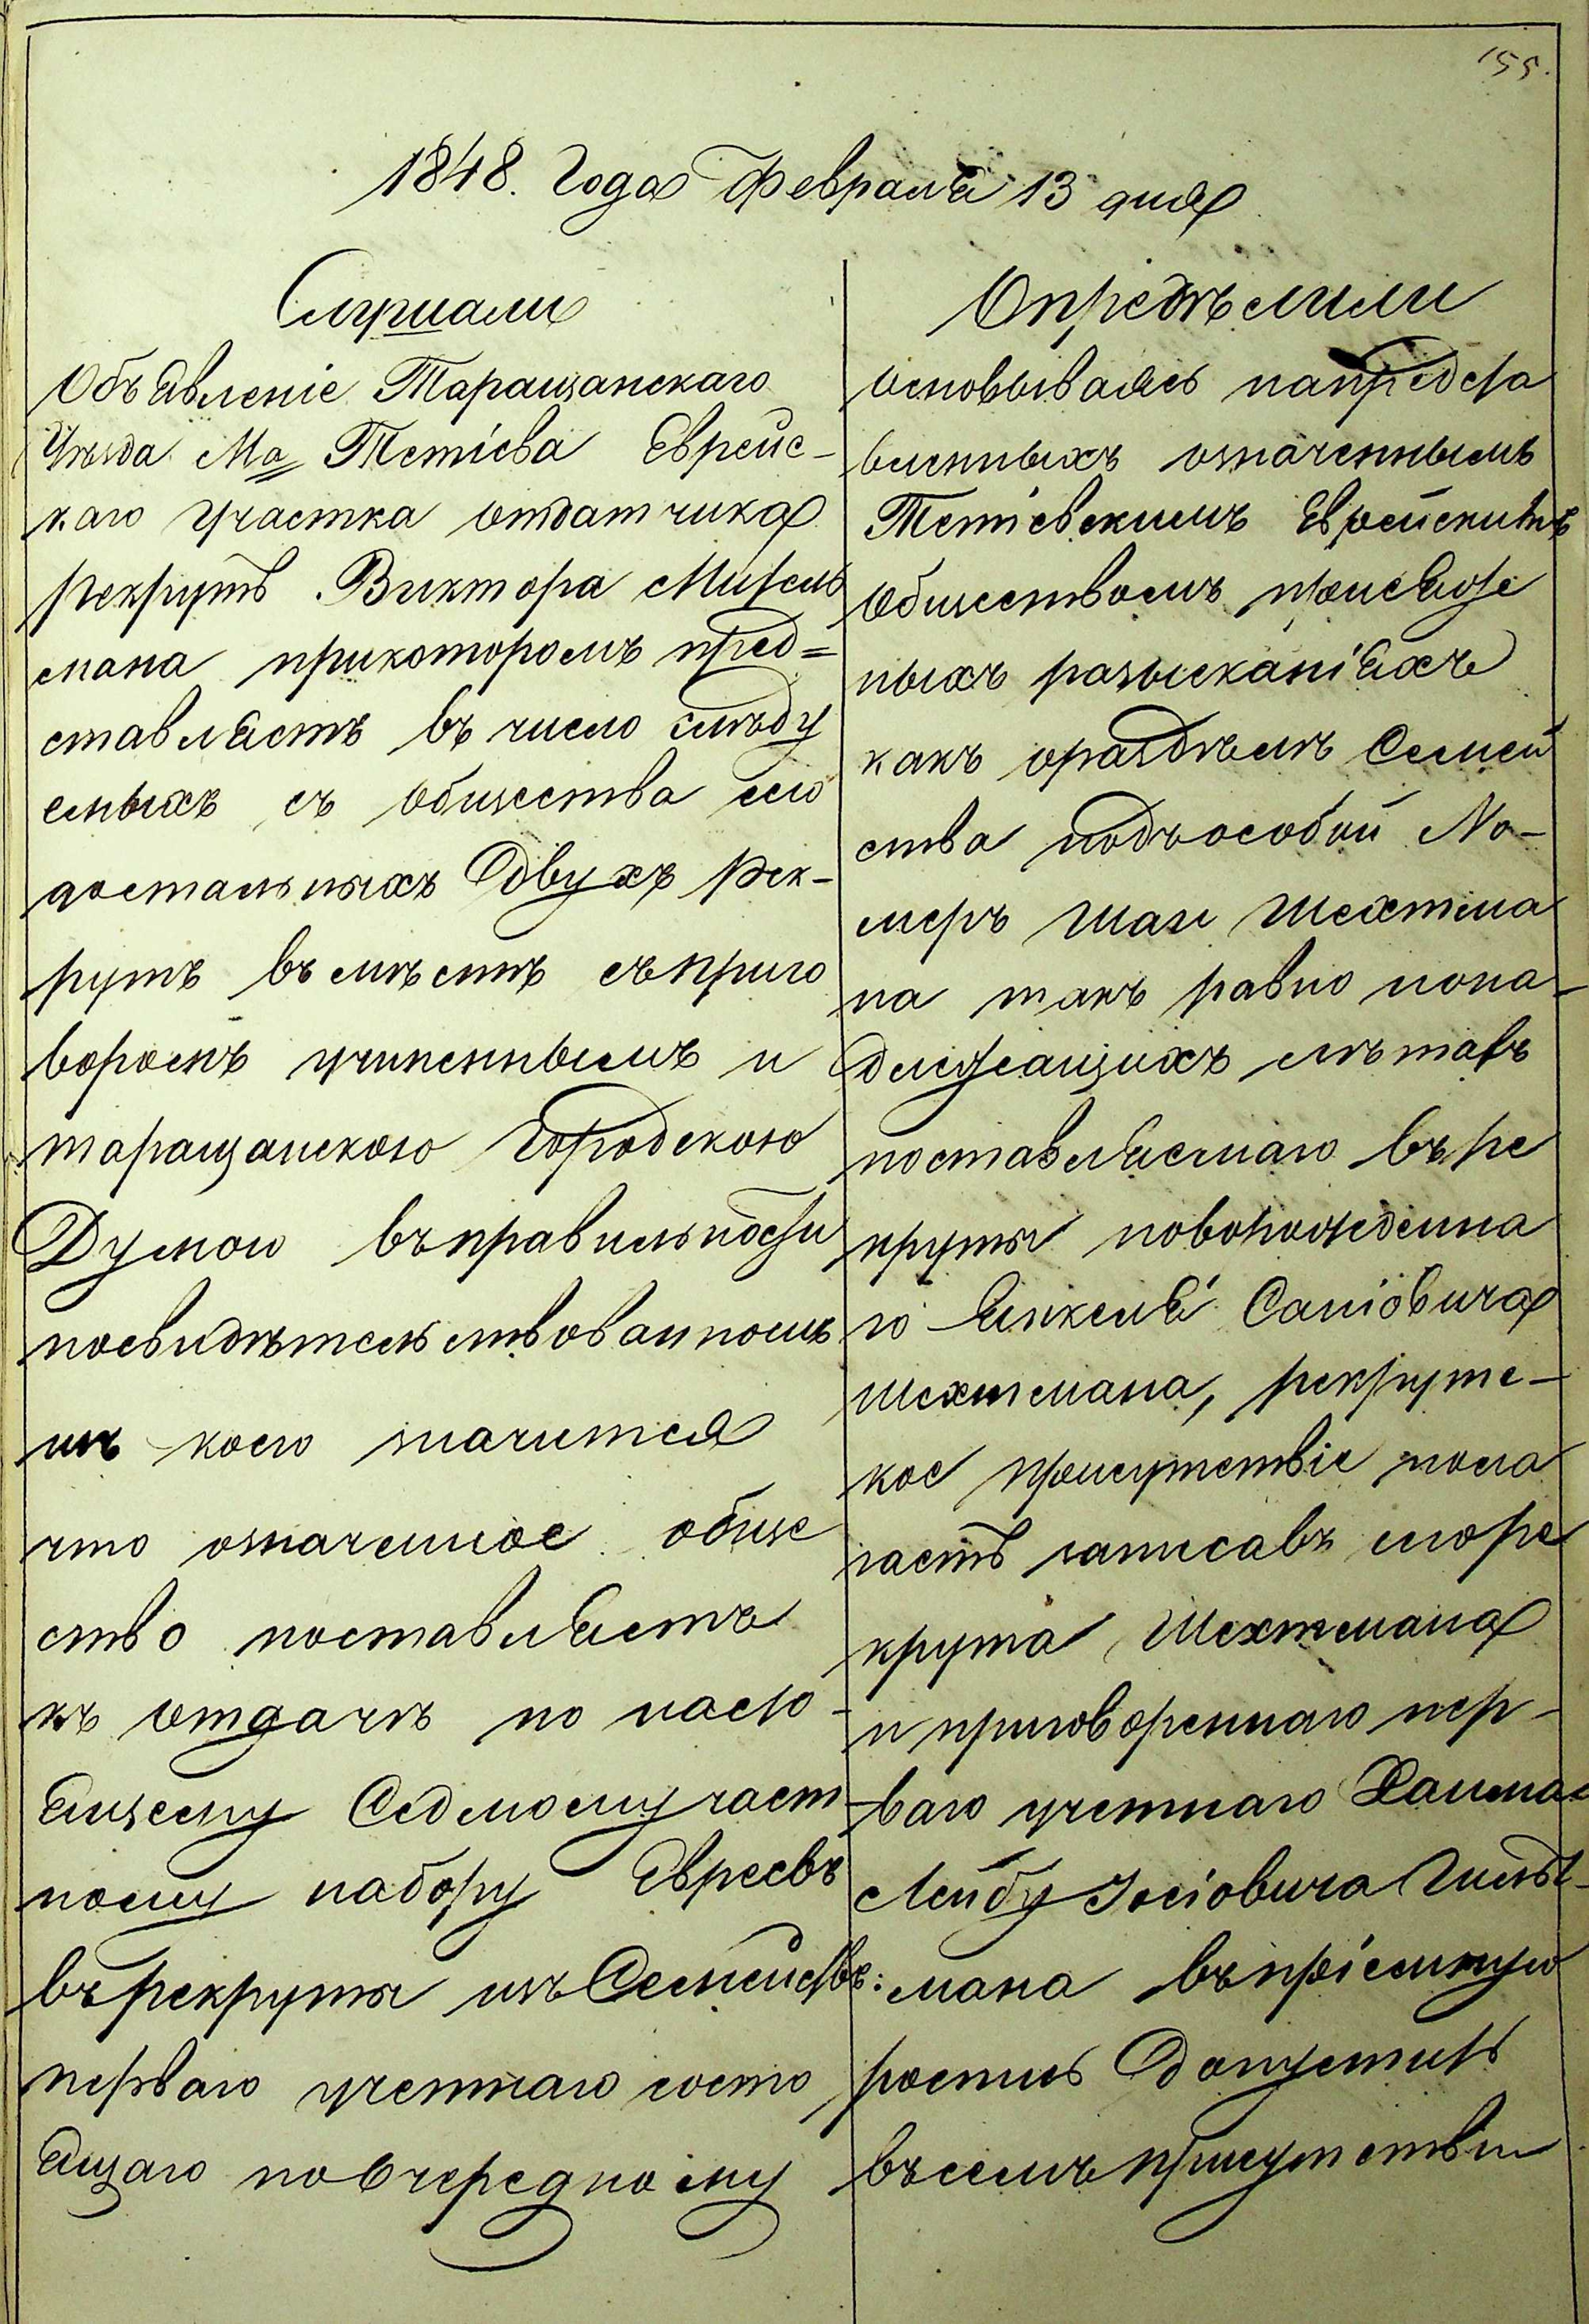 155.
1848. Года Февраля 13 дня
Слушали
Объявленіе Таращанскаго
Уѣзда Ма Тетіева Еврейс-
каго участка отдатчика
рекрутъ Виктора Митель
мана прикоторомъ пред=
ставляетъ въ число слѣду
емыхъ съ общества сего
достальныхъ двухъ рек-
рутъ въмѣстѣ съприго
воромъ учиненнымъ и
таращанскою Городскою
Думою въправильности
посвидѣтельствованномъ
изъ коего значится
что означенное обще
ство поставляетъ
къ отдачѣ по насто-
ящему Седмому част
ному набору Евреевъ
въ рекруты изъ Семействъ:
перваго учетнаго состо
ящаго по Очередному
Опредѣлили
основываясь напредста
вленныхъ означеннымъ
Тетіевскимъ Еврейскимъ
обществомъ присяж
ныхъ разысканіяхъ
какъ оразделѣ Семей
ства подъособый No-
меръ Шаи Шехтма
на такъ равно пона-
длежащихъ лѣтахъ
поставляемаго въ ре
круты новорожденна
го Янкеля Саніовича
Шехтмана, рекрутс-
кое присутствіе пола
гаетъ записавъ сюре
крута Шехтмана
и приговореннаго пер-
ваго учетнаго Хаима
Лейбу Іосіовича Гильт-
мана въпріемную
роспись допустить
въсемъ присутствіи